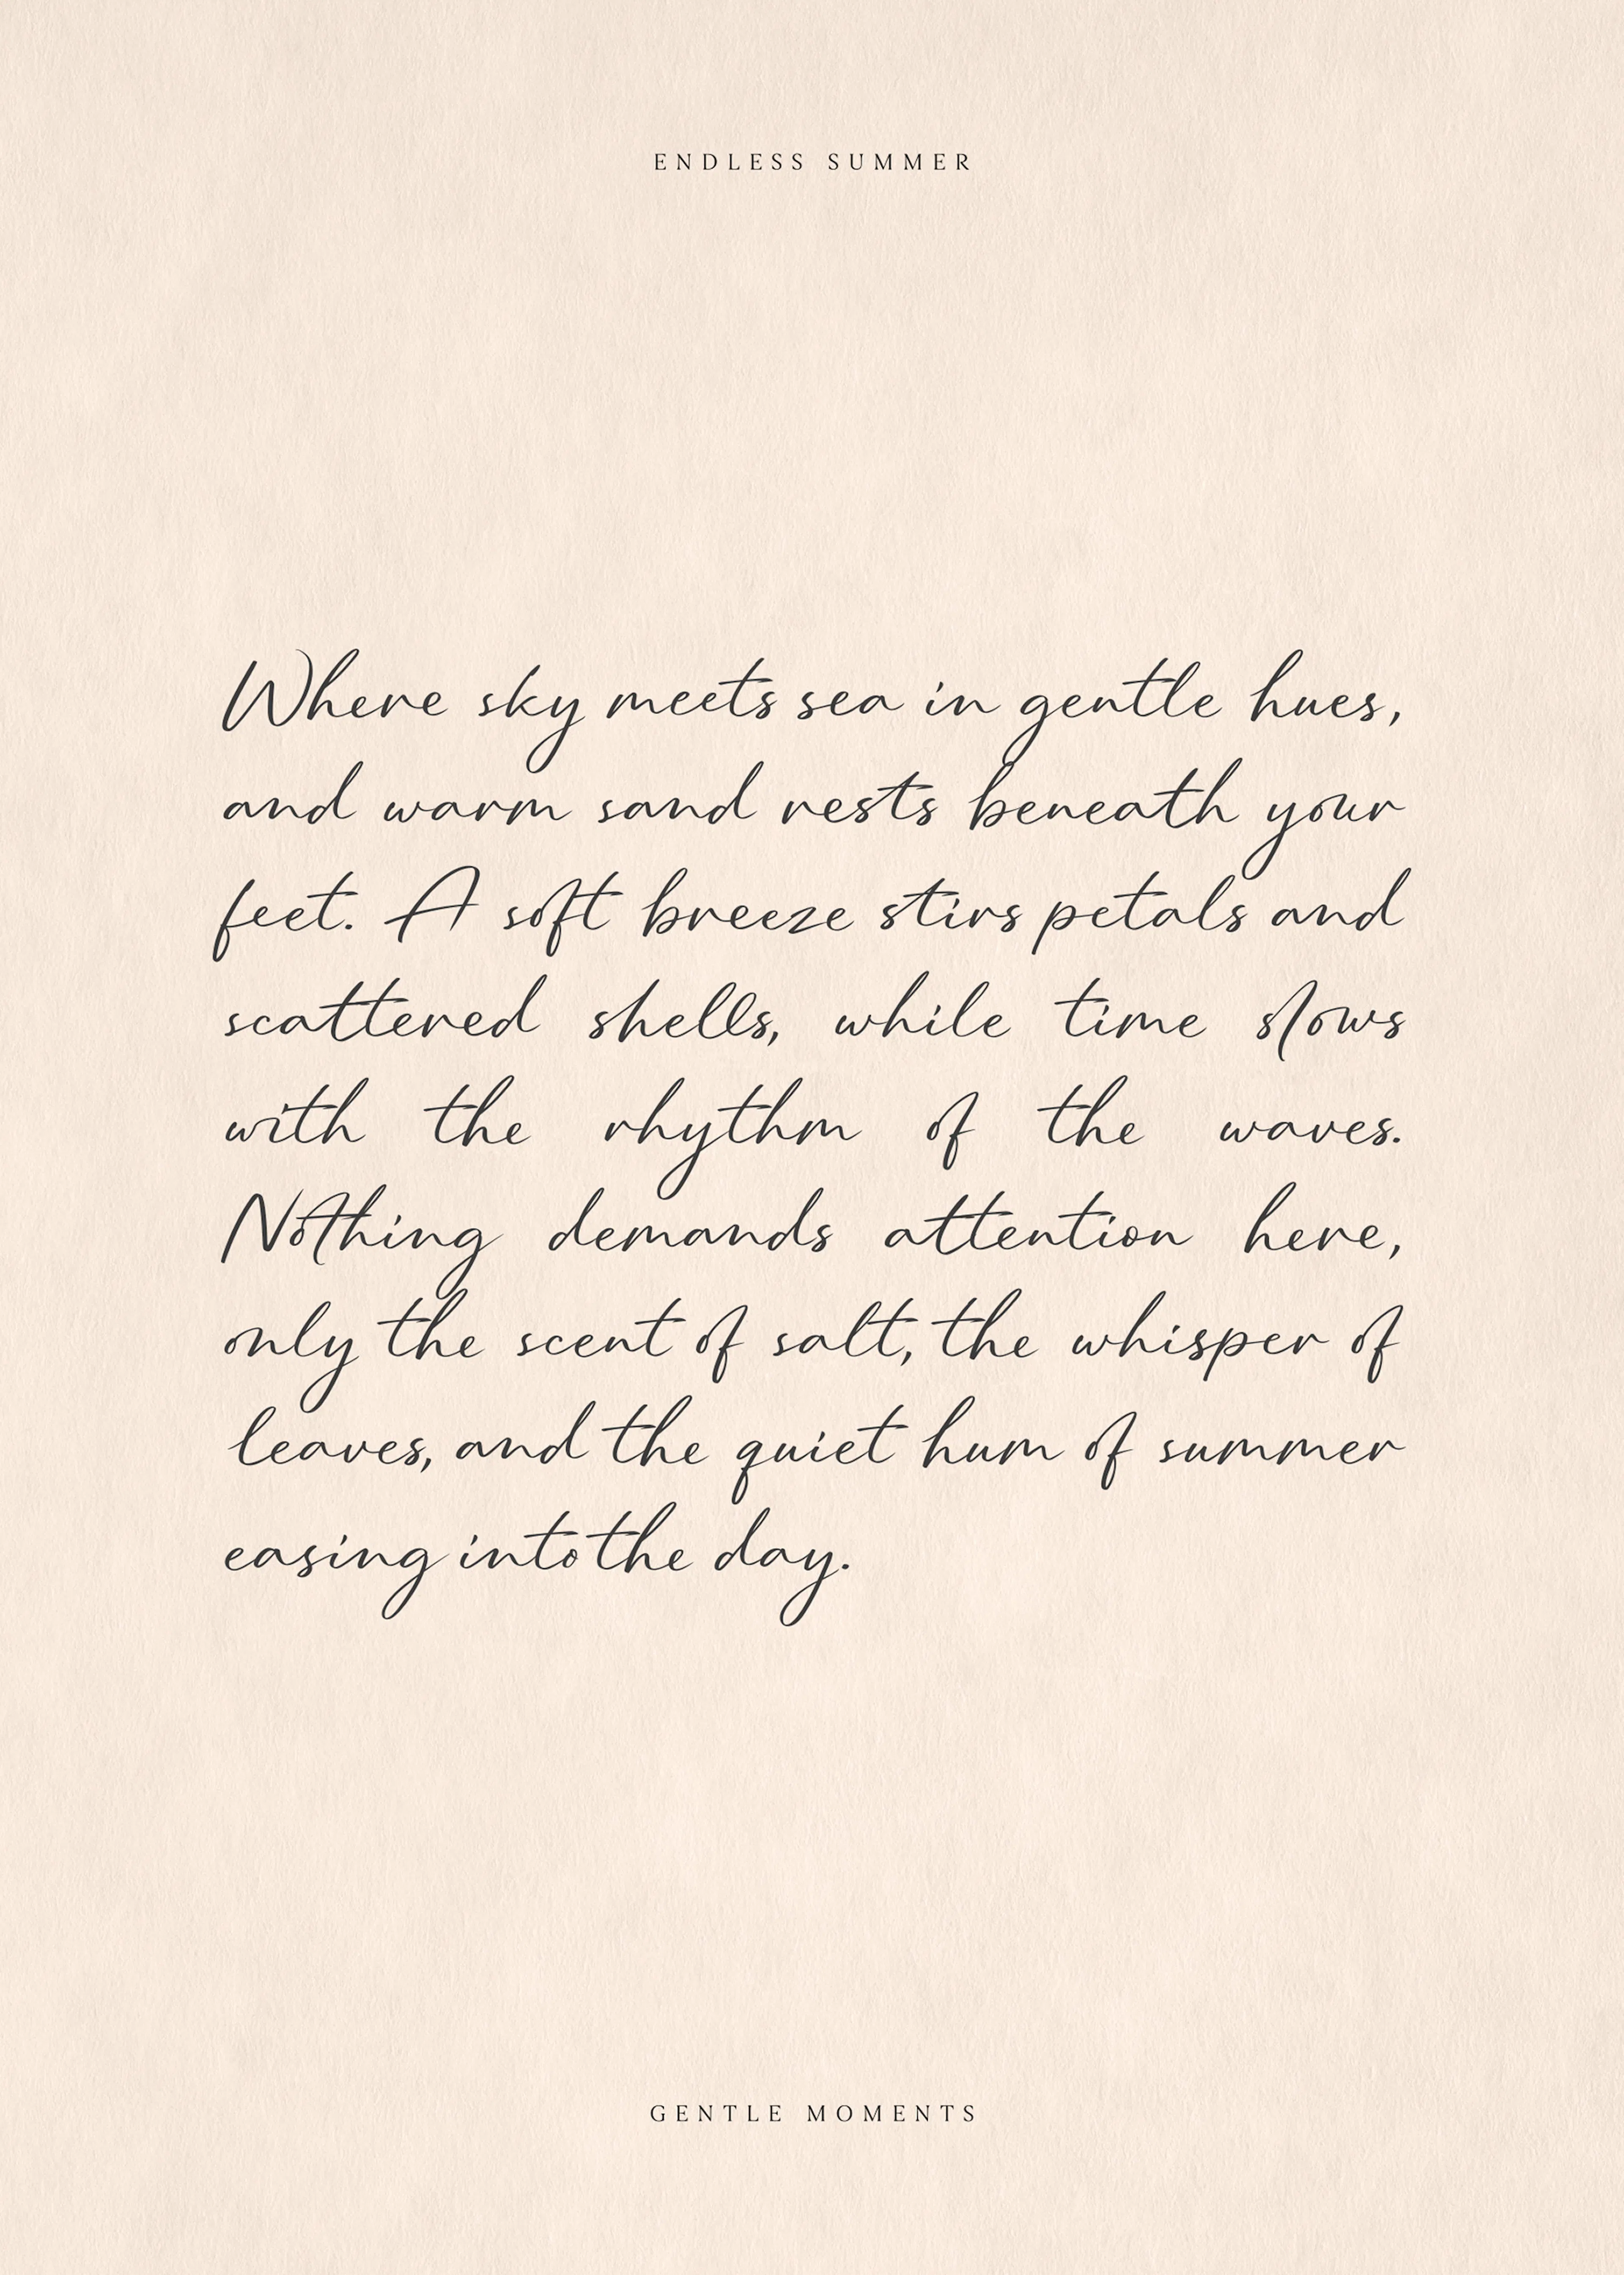 ENDLESS SUMMER
Where sky meets sea in gentle hues,
and warm sand rests beneath your
feet. A soft breeze stirs petals and
scattered shells, while time slows
with the rhythm of the waves.
Nothing demands attention here,
only the scent of salt, the whisper of
leaves, and the quiet hum of summer
easing into the day.
GENTLE MOMENTS